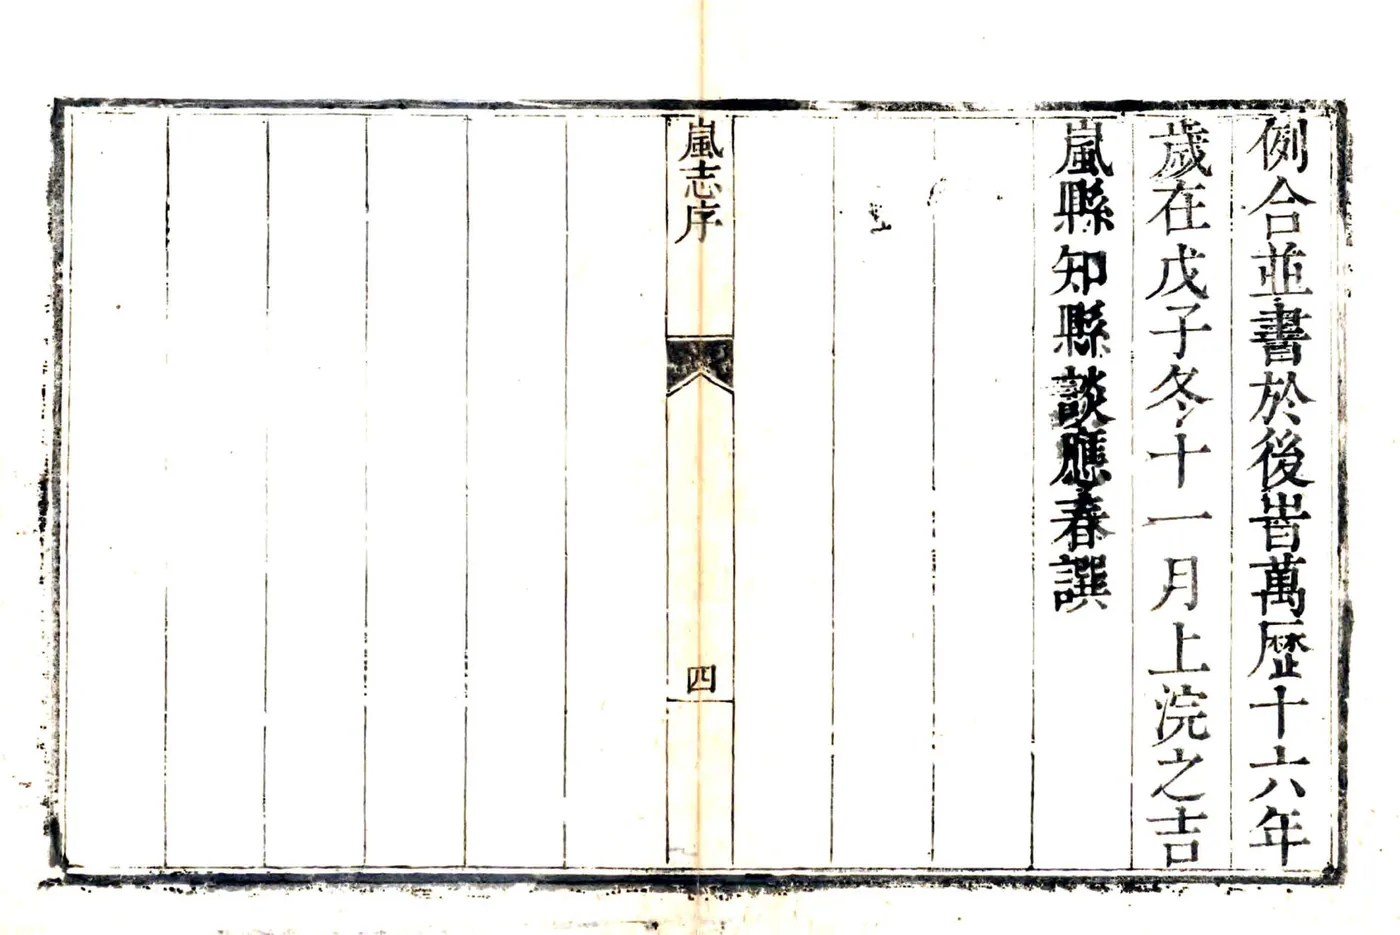 例合並書於後旹萬歷十六年
歲在戊子冬十一月上浣之吉
嵐縣知縣談應春譔
嵐志序
四